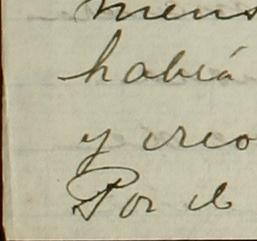 mens
había
y creo
Por el